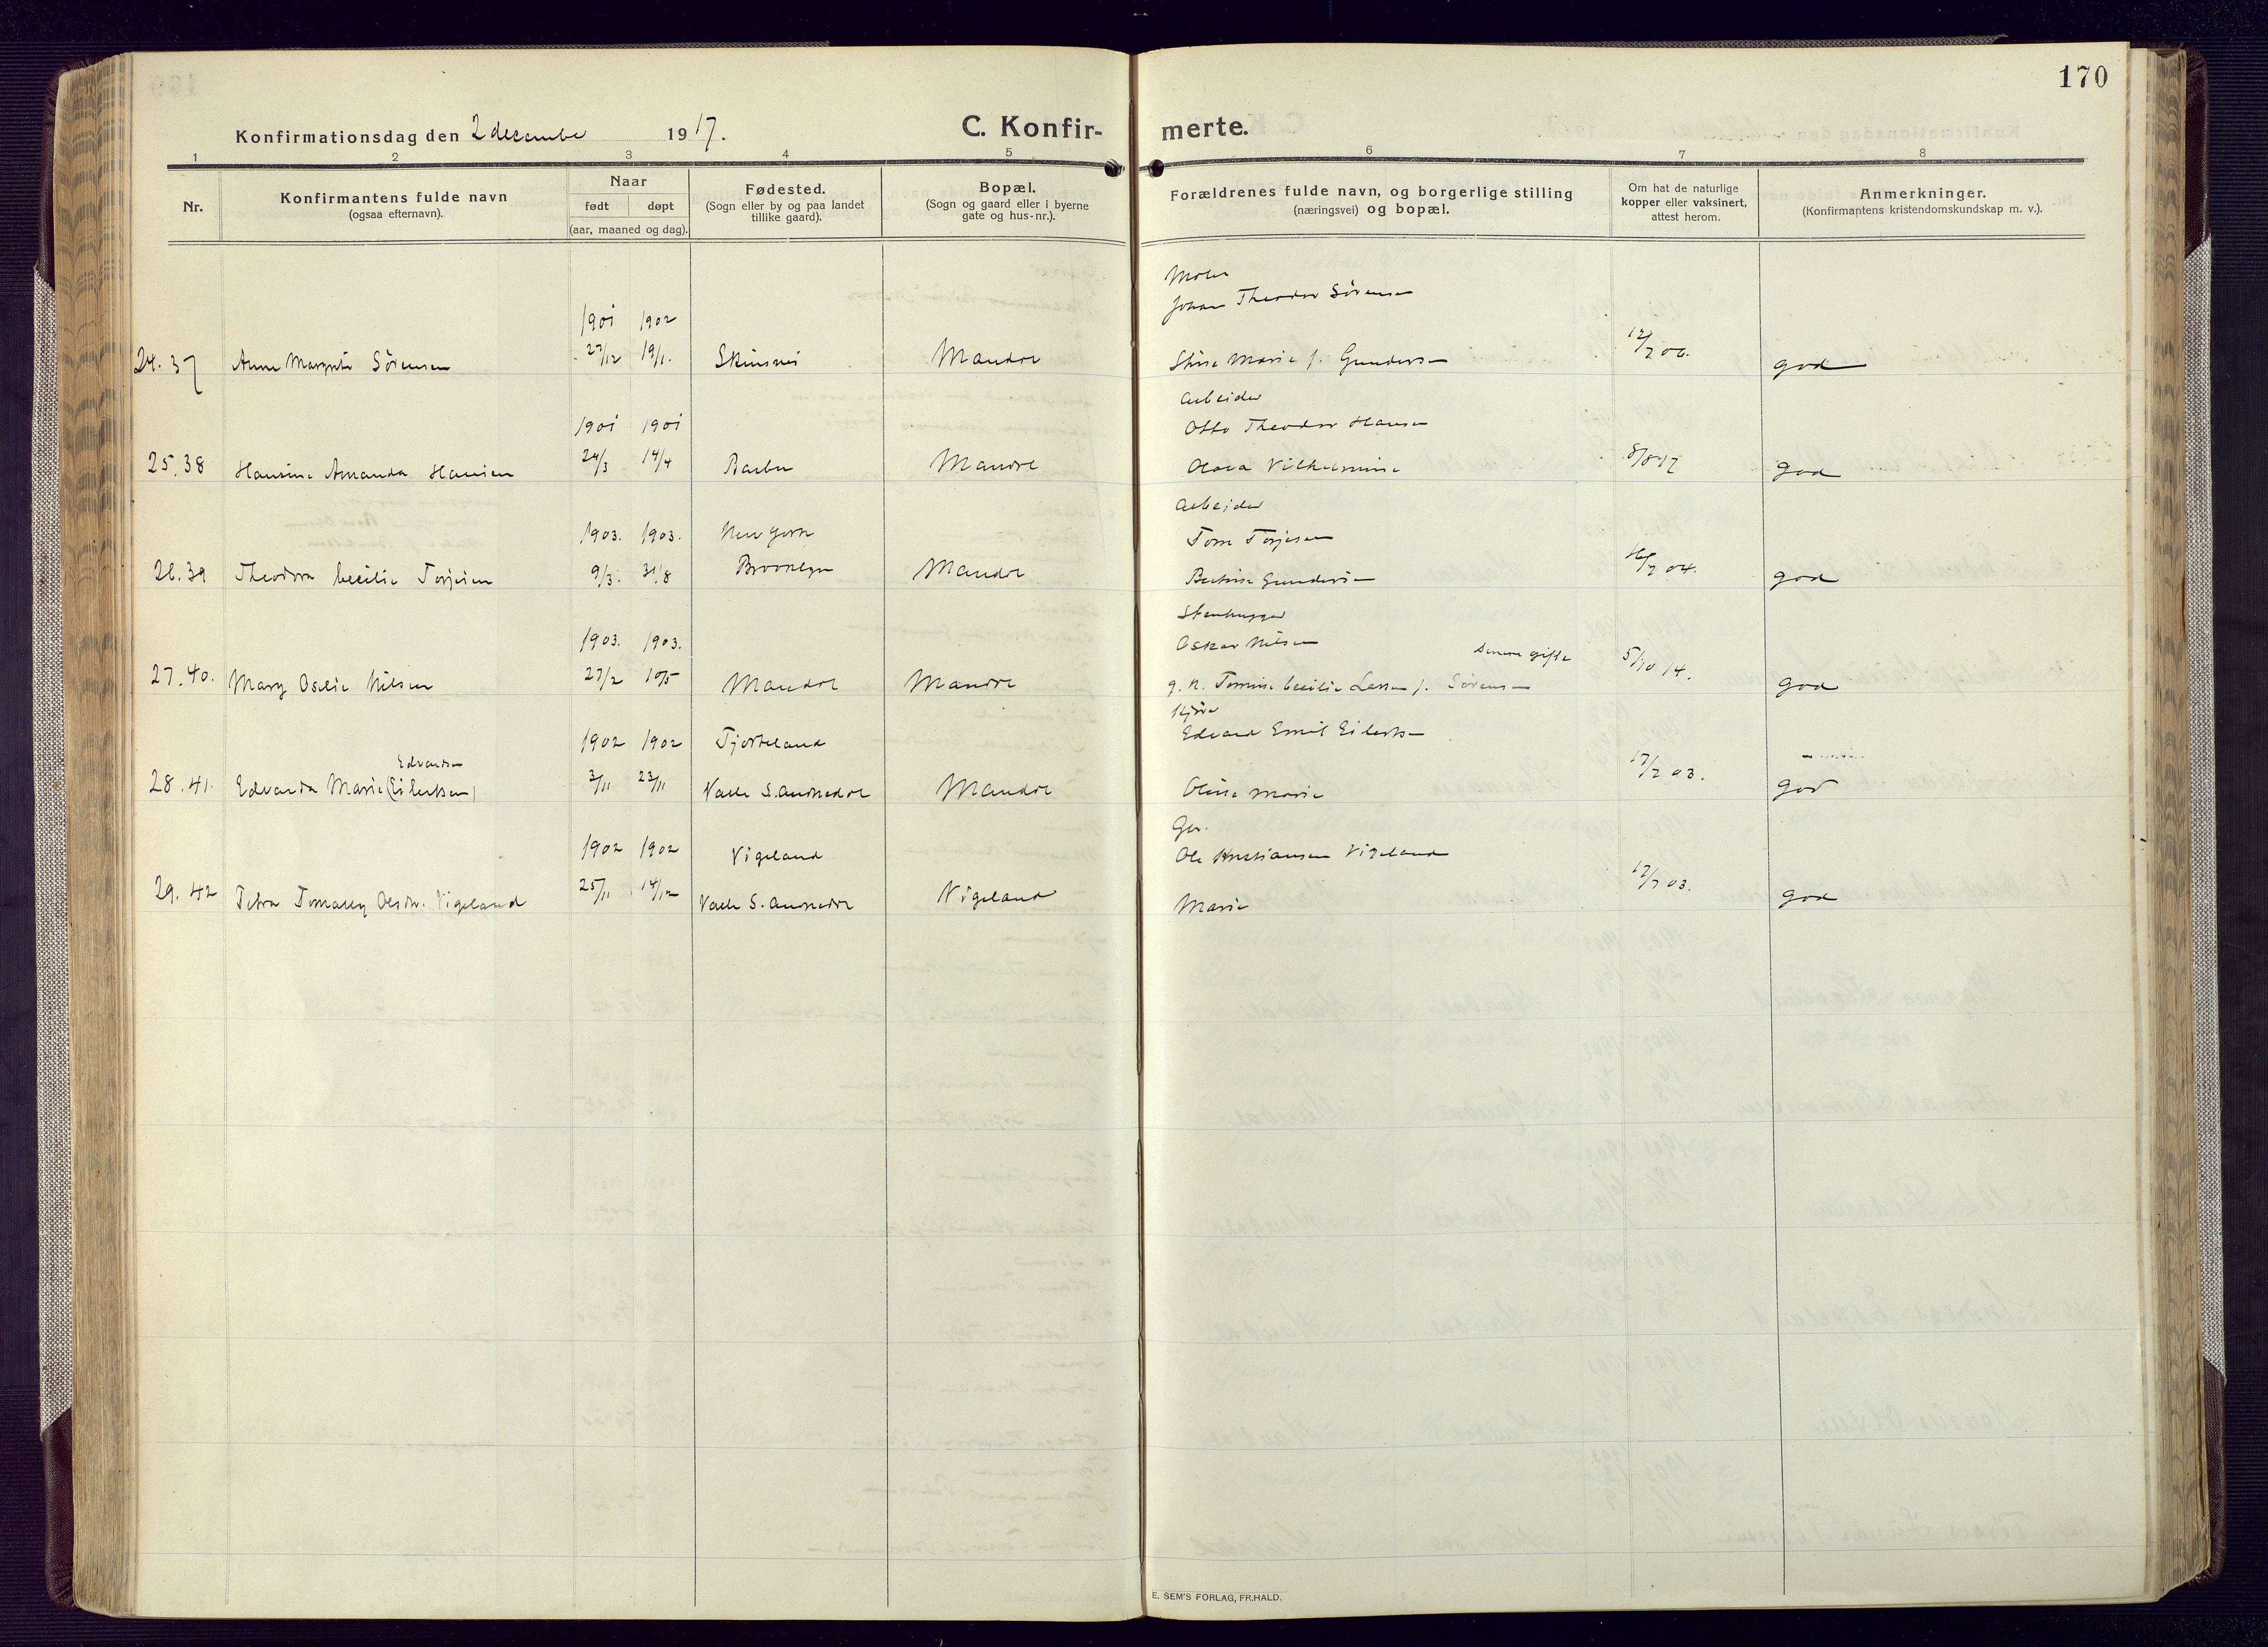 170
Konfirmationsdag den 2 decembe 1917. C. Konfirmerte.
1 2 3 4 5 6 7 8
Nr.
Konfirmantens fulde navn
(ogsaa efternavn).
Naar
født døpt
(aar, maaned og dag).
Fødested.
(Sogn eller by og paa landet
tillike gaard).
Bopæl.
(Sogn og gaard eller i byerne
gate og hus-nr.).
Forældrenes fulde navn, og borgerlige stilling
(næringsvei) og bopæl.
Om hat de naturlige
kopper eller vaksinert,
attest herom.
Anmerkninger.
(Konfirmantens kristendomskundskap m. v.).
Maler
Johan Theodor Sörensen
1901 1902
24. 37 Anna Margrete Sörensen 27/12 19/1. Mandal Marie f. Gundersen god
Arbeider
1901 1901 Otto Theodor Hansen
25. 38 Hansine Amanda Hansen 24/3 14/4 Mandal Olava Vilhelmine 8/8 17 god
Arbeider
1903. 1903. New York Tom Torjesen
26. 39 Theodora Cecilie Torjesen 9/3. 31/8 Brooklyn Mandal Gundersen 04. god
Stenhugger
1903. 1903. Oskar Nilsen Senere gifte
27. 40. Mary Oselie Nilsen 27/2 10/5 Mandal Mandal g. n. Tomine Cecilie Larsen f. Sörensen 5/10 14. god
1902 1902 Edvard Emil Eilertsen
Edvardsen
28. 41. Edvarda Marie (Eilertsen) 3/11 23/11 Valle S. Audnedal Mandal Marie 17/7 03. god
Gbr.
1902 1902 Vigeland Ole Kristiansen Vigeland
29. 42 Olsdtr. Vigeland 25/11 14/12 Valle S. Audnedal Vigeland Marie 17/7 03. god
E. SEM'S FORLAG, FR.HALD.